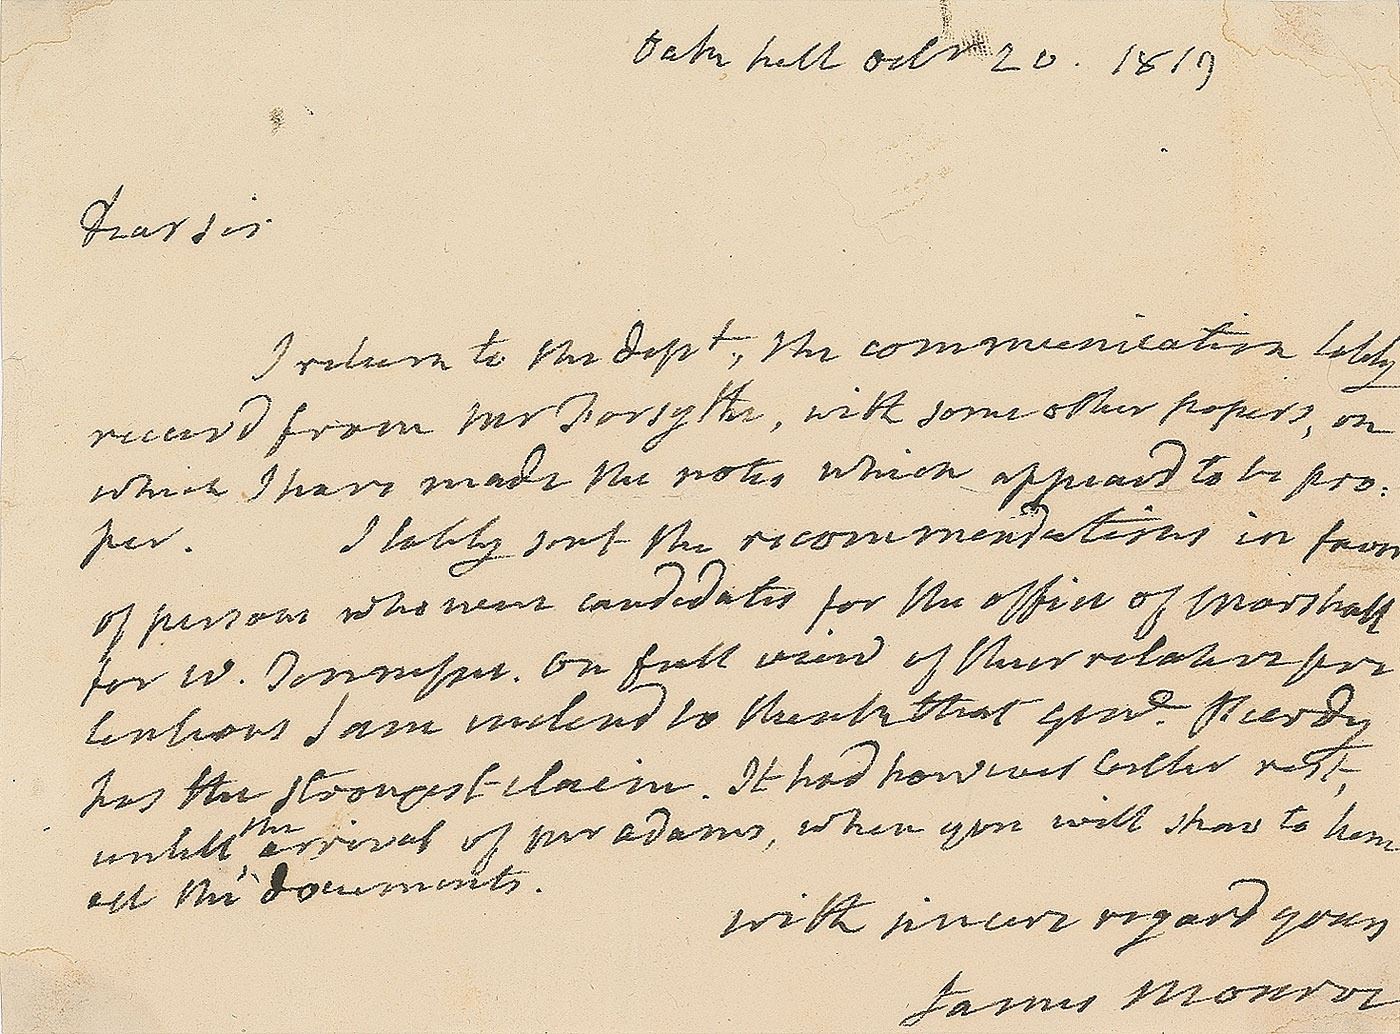 Oak hill Octr 20. 1819
Dear Sir
I return to the dept., the communication lately
receivd from Mr Forsythe, with some other papers, on
which I have made the notes which appeard to be pro:
per. I lately sent the recommendations in favor
of persons who were candidates for the office of Marshall
for W. Tennessee. On full view of their relative pre
tentions I am inclend to think that genl.
has the strongest claim. It had however better rest,
untill the arrival of Mr Adams, when you will shew to him
all the documents.
with sincere regard yours
James Monroe